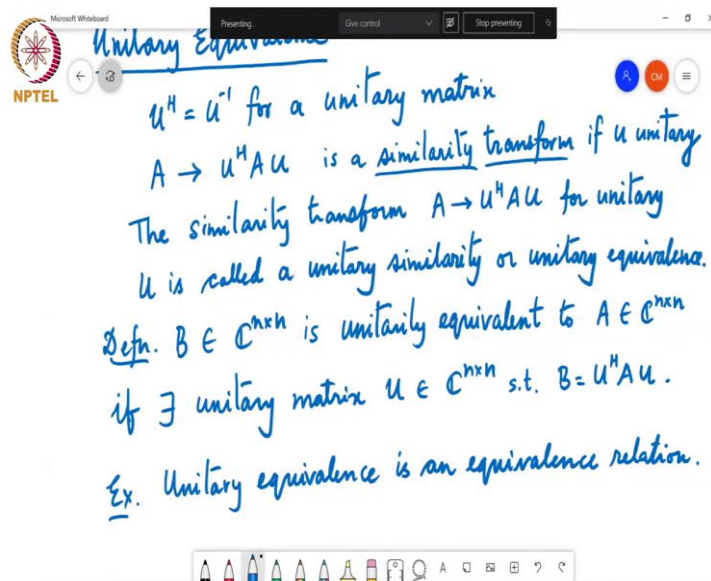 Microsoft Whiteboard
Presenting...
Give control
Stop presenting
NPTEL
CM
Unitary Equivalence
U^H = U^-1 for a unitary matrix
A → U^H A U is a similarity transform if U unitary
The similarity transform A → U^H A U for unitary
U is called a unitary similarity or unitary equivalence.
Defn. B ∈ ℂ^n×n is unitarily equivalent to A ∈ ℂ^n×n
if ∃ unitary matrix U ∈ ℂ^n×n s.t. B = U^H A U.
Ex. Unitary equivalence is an equivalence relation.